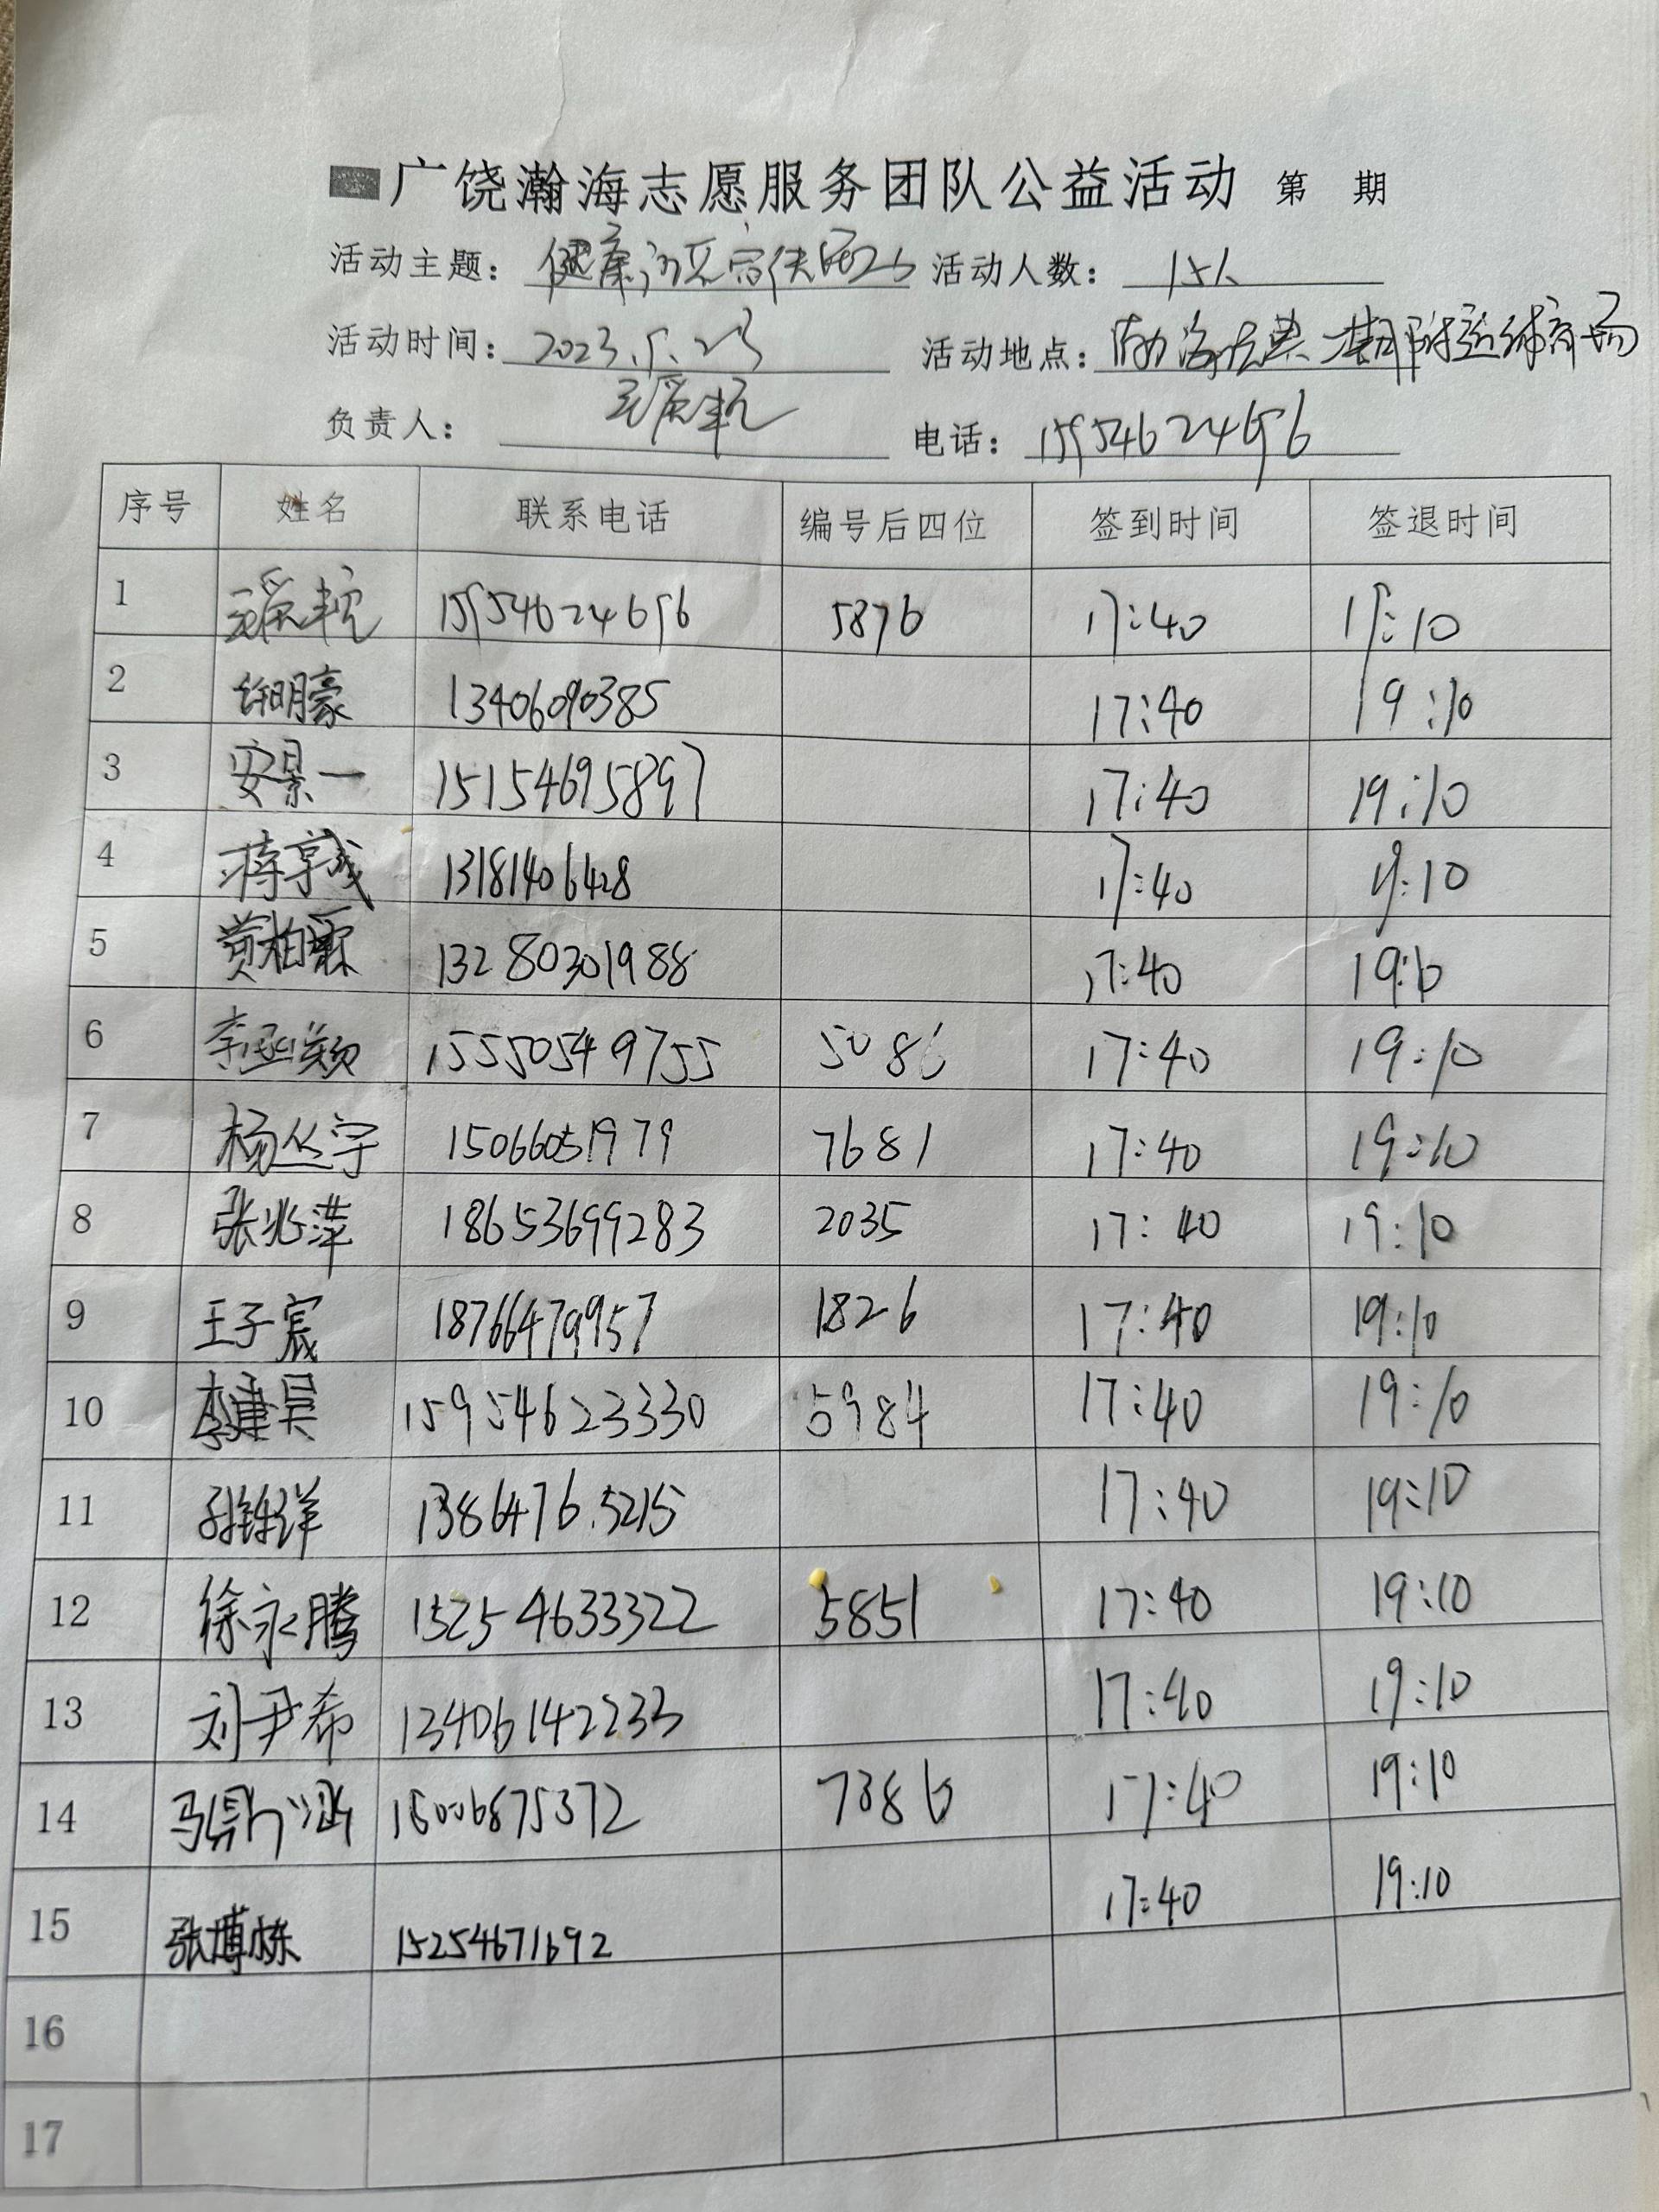 广饶瀚海志愿服务团队公益活动 第 期
活动主题： 健康 活动人数： 15人
活动时间： 2023.5.23 活动地点： 渤海 二期附近体育场
负责人： 电话： 15954624696
序号 姓名 联系电话 编号后四位 签到时间 签退时间
1 15954624696 5876 17:40 19:10
2 许明豪 13406090385 17:40 19:10
3 安景一 15154695897 17:40 19:10
4 蒋享成 13181406428 17:40 19:10
5 黄柏霖 13280301988 17:40 19:10
6 李丞颖 15550549755 5086 17:40 19:10
7 杨丛宇 15066051979 7681 17:40 19:10
8 张兆萍 18653699283 2035 17:40 19:10
9 王子宸 18766479957 1826 17:40 19:10
10 李建昊 15954623330 5984 17:40 19:10
11 洋 13864765215 17:40 19:10
12 徐永腾 15254633322 5851 17:40 19:10
13 刘尹希 13406142233 17:40 19:10
14 马鼎涵 15006875372 7386 17:40 19:10
15 张博栋 15254671692 17:40 19:10
16
17